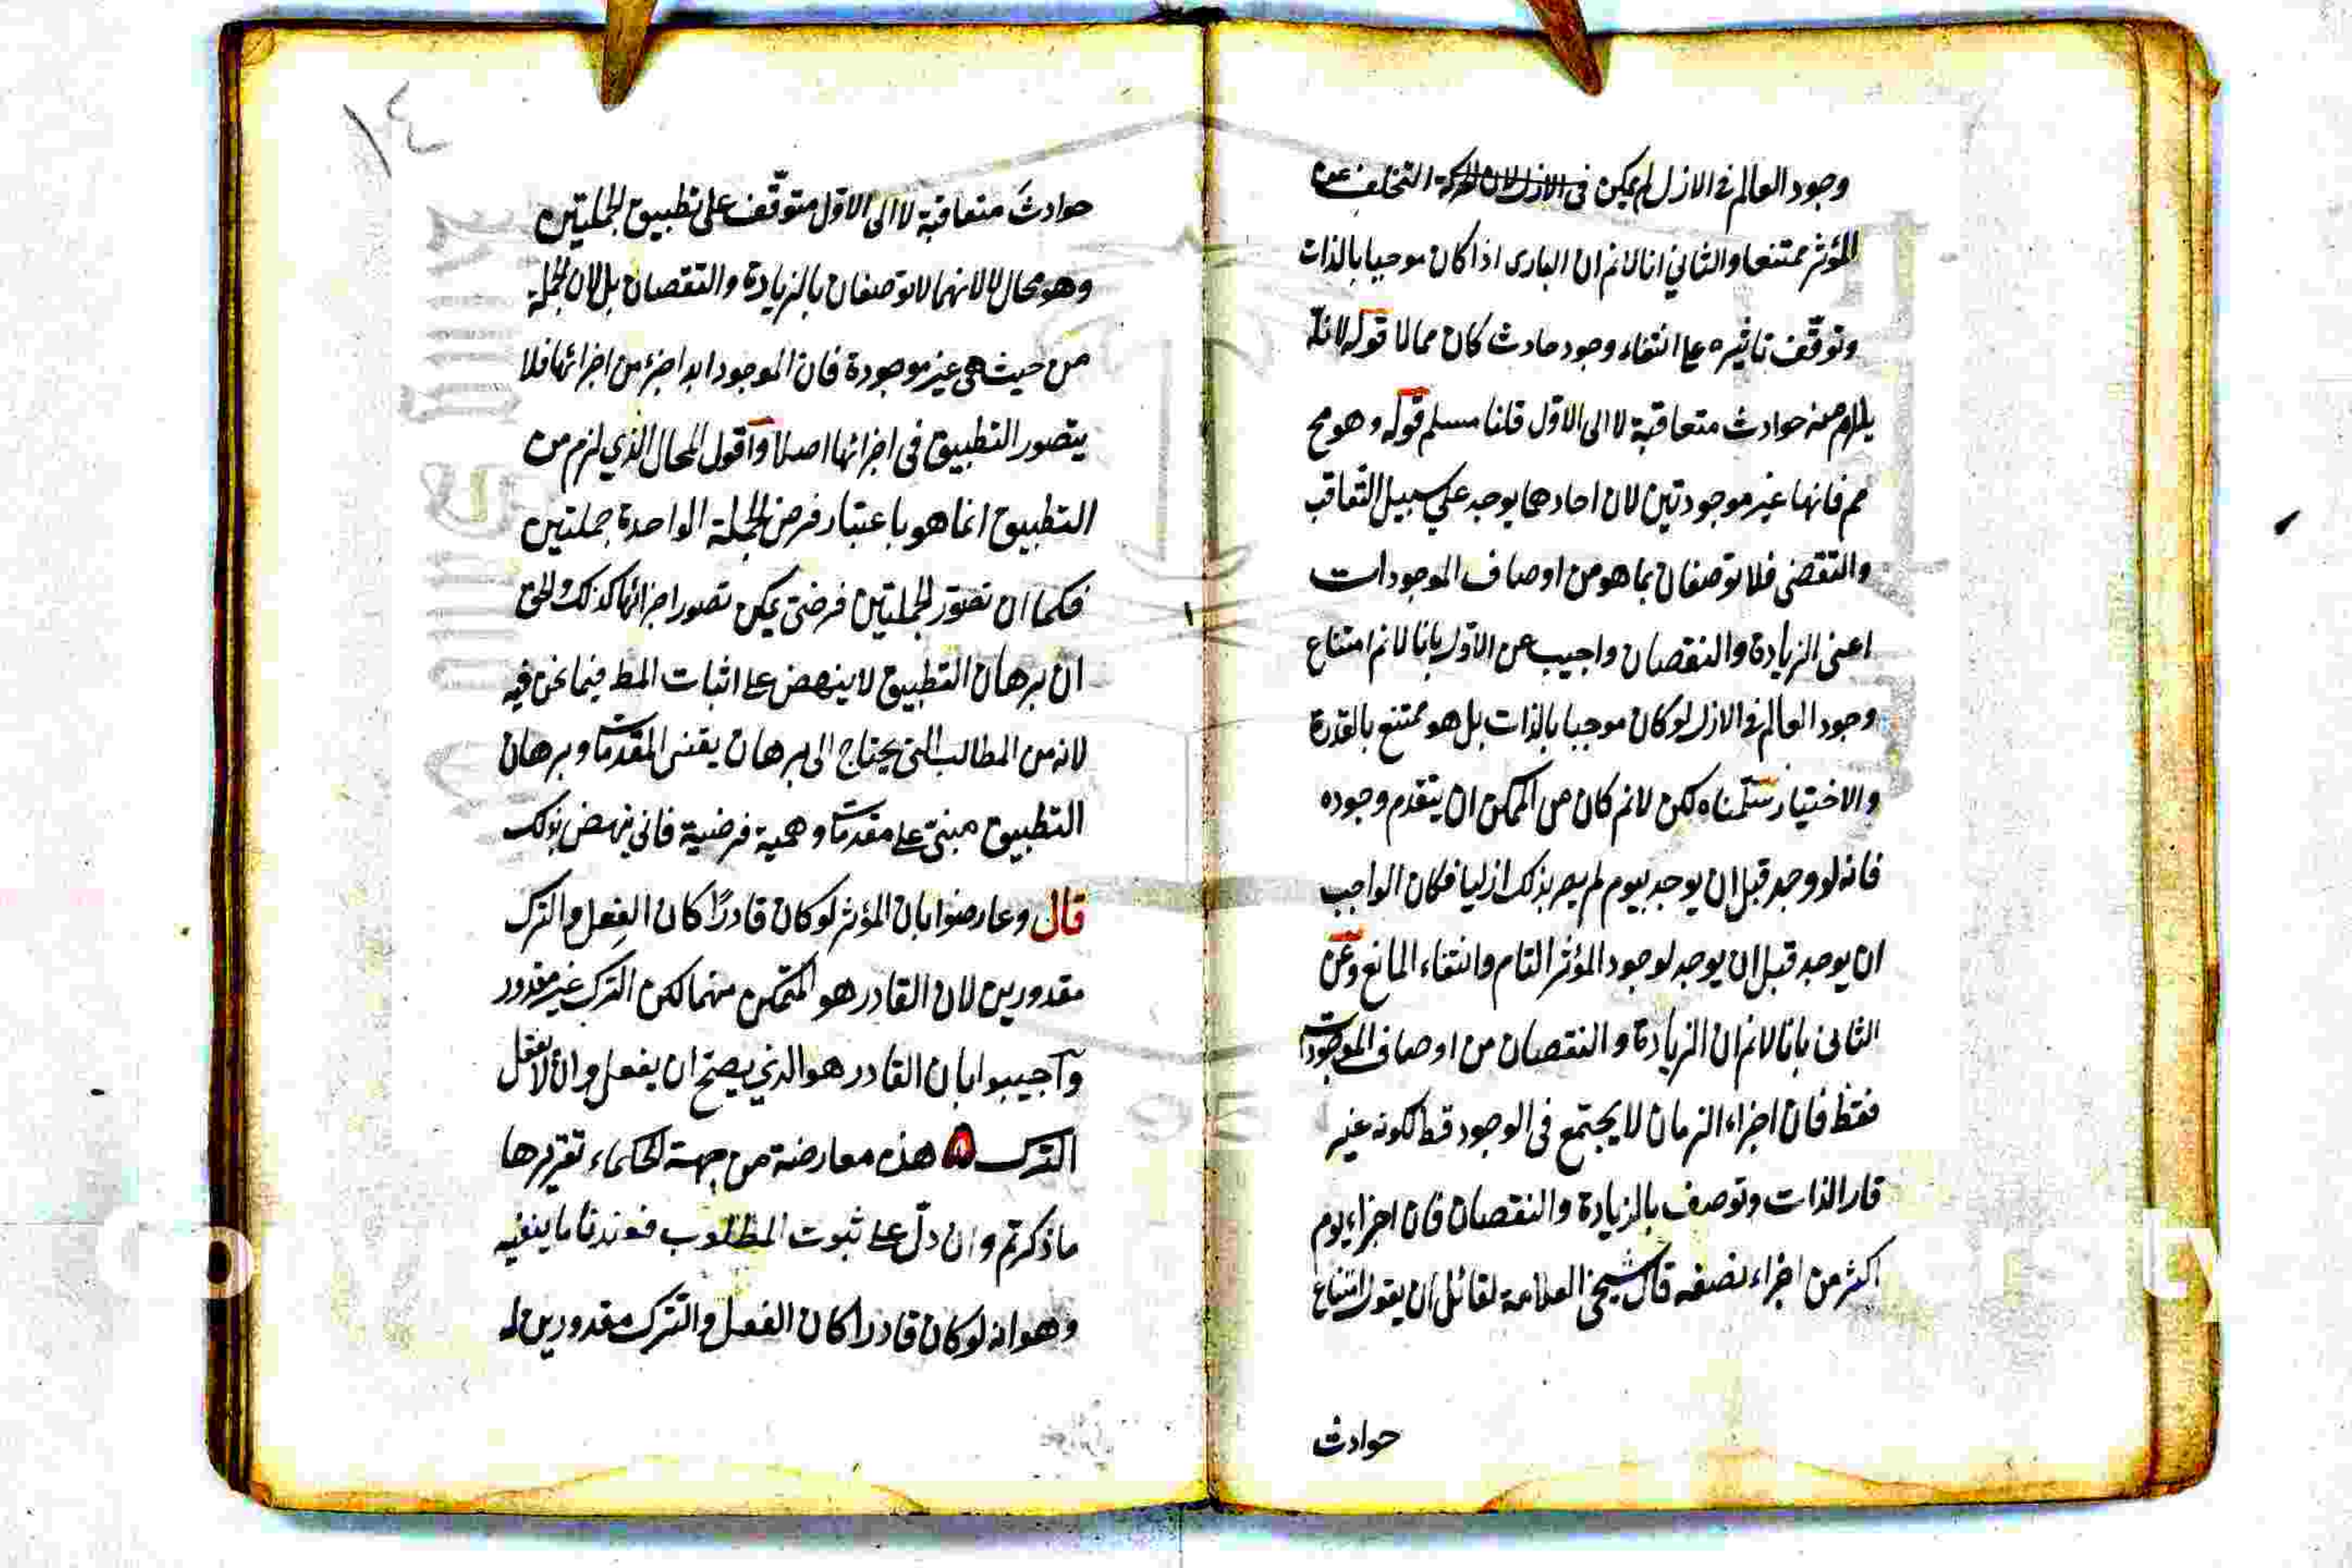 وجود العالم في الازل لم يمكن في الازل لان الحركة التخلف عن
المؤثر ممتنعا والثاني انا لانم ان الباري اذا كان موجبا بالذات
وتوقف تاثيره على انتفاء وجود حادث كان محالا قوله لانه
يلزم منه حوادث متعاقبة لا الى الاول قلنا مسلم قوله وهو مح
مم فانها غير موجودتين لان احادهما يوجد على سبيل التعاقب
والتقضى فلا توصفان بما هو من اوصاف الموجودات
اعنى الزيادة والنقصان واجيب عن الاول بانا لانم امتناع
وجود العالم في الازل لو كان موجبا بالذات بل هو ممتنع بالقدرة
والاختيار سلمناه لكن لانم كان من الممكن ان يتقدم وجوده
فانه لو وجد قبل ان يوجد بيوم لم يصر بذلك ازليا فكان الواجب
ان يوجد قبل ان يوجد لوجود المؤثر التام وانتفاء المانع وعن
الثانى بانا لانم ان الزيادة والنقصان من اوصاف الموجودات
فقط فان اجزاء الزمان لا يجتمع فى الوجود قط لكونه غير
قار الذات وتوصف بالزيادة والنقصان فان اجزاء يوم
اكثر من اجزاء نصفه قال شيخى العلامة لقائل ان يقول امتناع
حوادث
١٤
حوادث متعاقبة لا الى الاول متوقف على تطبيق الجملتين
وهو محال لا لانهما لا توصفان بالزيادة والنقصان بل لان الجملة
من حيث هى غير موجودة فان الموجود ابدا جزء من اجزائها فلا
يتصور التطبيق فى اجزائها اصلا واقول المحال الذي لزم من
التطبيق انما هو باعتبار فرض الجملة الواحدة جملتين
فكما ان تصور الجملتين فرضى يمكن تصور اجزائها كذلك والحق
ان برهان التطبيق لا ينهض على اثبات المط فيما نحن فيه
لانه من المطالب التى يحتاج الى برهان يقينى المقدمات وبرهان
التطبيق مبنى على مقدمات وهمية فرضية فانى ينهض بذلك
قال وعارضوا بان المؤثر لو كان قادرًا كان الفعل والترك
مقدورين لان القادر هو المتمكن منهما لكن الترك غير مقدور
واجيبوا بان القادر هو الذي يصح ان يفعل وان لا يفعل
الترك هذه معارضة من جهة الحكماء تقريرها
ما ذكرتم وان دل على ثبوت المطلوب فعندنا ما ينفيه
وهو انه لو كان قادرا كان الفعل والترك مقدورين له